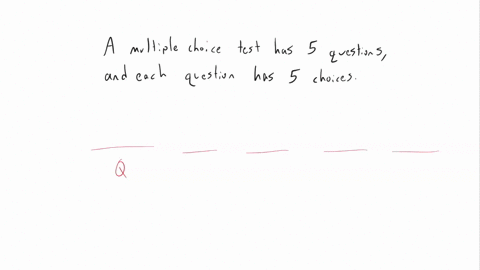 A multiple choice test has 5 questions,
and each question has 5 choices.
Q